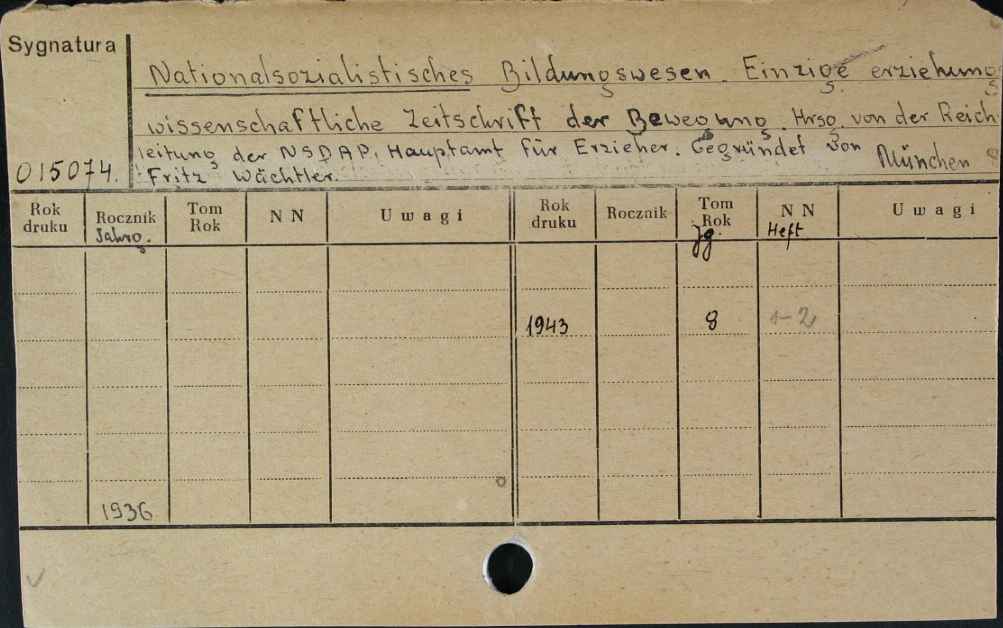 Sygnatura
Nationalsozialistisches Bildungswesen. Einzige erziehung
wissenschaftliche Zeitschrift der Bewegung. Hrsg. von der Reich
leitung der NSDAP. Hauptamt für Erzieher. Gegründet von München
015074. Fritz Wächtler.
Rok druku Rocznik Tom Rok NN Uwagi Rok druku Rocznik Tom Rok NN Uwagi
Jahrg. Jg. Heft
1943 8 1-2
1936